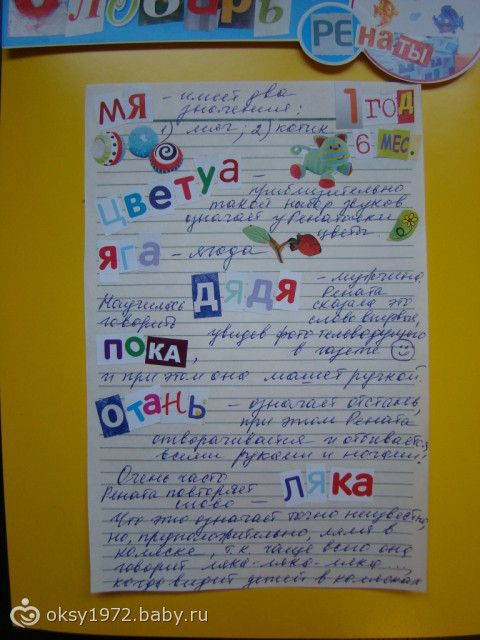 Словарь
Ренаты
МЯ - имеет два
значения:
1) мяч; 2) котик
1 год
6 мес.
цветуа -
приблизительно
такой набор звуков
означает у Ренаточки
цветы
яга - ягода
дядя - мужчина
Рената
Научилась сказала это
говорить слово впервые,
увидев фото телеведущего
пока, в газете
и при этом она машет ручкой.
Отань - означает отстань,
при этом Рената
отворачивается и отбивается
всеми руками и ногами!
Очень часто
Рената повторяет
слово - ляка
Что это означает точно неизвест-
но, предположительно, ляля в
коляске, т.к. чаще всего она
говорит ляка-ляка-ляка...,
когда видит детей в колясках
oksy1972.baby.ru